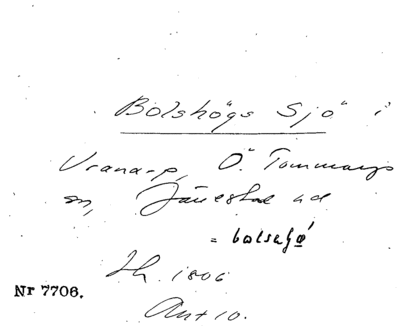 Bolshögs Sjö i
Vranarp, Ö. Tommarps
sn, Järrestad hd
= bolsahø
Ih. 1806
Nr 7706.
Ant 10.